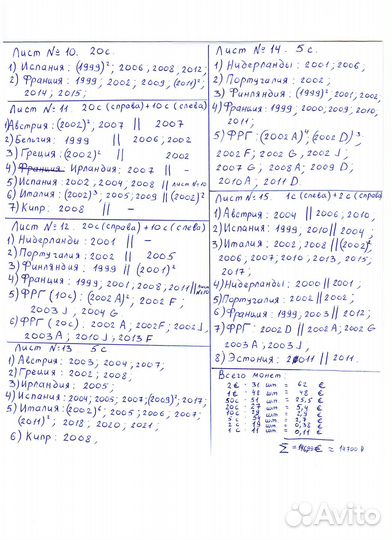 Лист № 10. 20 с.
1) Испания: (1999)², 2006, 2008, 2012;
2) Франция: 1999, 2002, 2009, (2011)²,
2014, 2015;
Лист № 11 20с (справа) + 10с (слева)
1) Австрия: (2002)², 2007 || 2007
2) Бельгия: 1999 || 2006, 2002
3) Греция: (2002)² || 2002
4) Франция Ирландия: 2007 || -
5) Испания: 2002, 2004, 2008 || лист №10
6) Италия: (2002)³, 2005; 2009 || (2002)²
7) Кипр: 2008 || -
Лист № 12. 20с (справа) + 10с (слева)
1) Нидерланды: 2001 || -
2) Португалия: 2002 || 2005
3) Финляндия: 1999 || (2001)²
4) Франция: 1999, 2001, 2008, 2011 || лист №10
5) ФРГ (10с): (2002 A)², 2002 F,
2003 J, 2004 G
6) ФРГ (20с): 2002 A, 2002 F, 2002 J,
2003 A; 2010 J, 2013 F
Лист №13 5с
1) Австрия: 2003, 2004, 2007;
2) Греция: 2002; 2008;
3) Ирландия: 2005;
4) Испания: 2004; 2005; 2007; (2009)²; 2017;
5) Италия: (2002)⁶; 2005; 2006; 2007;
(2011)²; 2018; 2020; 2021;
6) Кипр: 2008;
Лист № 14. 5с.
1) Нидерланды: 2001; 2006;
2) Португалия: 2002;
3) Финляндия: (1999)², 2001, 2002;
4) Франция: 1999, 2000; 2009, 2010,
2011;
5) ФРГ: (2002 A)⁴, (2002 D)³,
2002 F; 2002 G, 2002 J;
2007 G; 2008 A; 2009 D;
2010 A; 2011 D.
Лист №15. 1с (слева) + 2с (справа)
1) Австрия: 2004 || 2006; 2010,
2) Испания: 1999, 2010 || 2004;
3) Италия: 2002, 2008 || (2002),
2006, 2007; 2010, 2013, 2015;
2017;
4) Нидерланды: 2000 || 2001;
5) Португалия: 2002 || 2002;
6) Франция: 1999, 2003 || 2012;
7) ФРГ: 2002 D || 2002 A; 2002 G
2003 A, 2003 J;
8) Эстония: 2011 || 2011.
Всего монет:
2€ - 31 шт. = 62 €
1€ - 48 шт. = 48 €
50с - 51 шт. = 25,5 €
20с - 27 шт. = 5,4 €
10с - 29 шт. = 2,9 €
5с - 54 шт. = 2,7 €
2с - 19 шт. = 0,38 €
1с - 11 шт. = 0,11 €
Avito